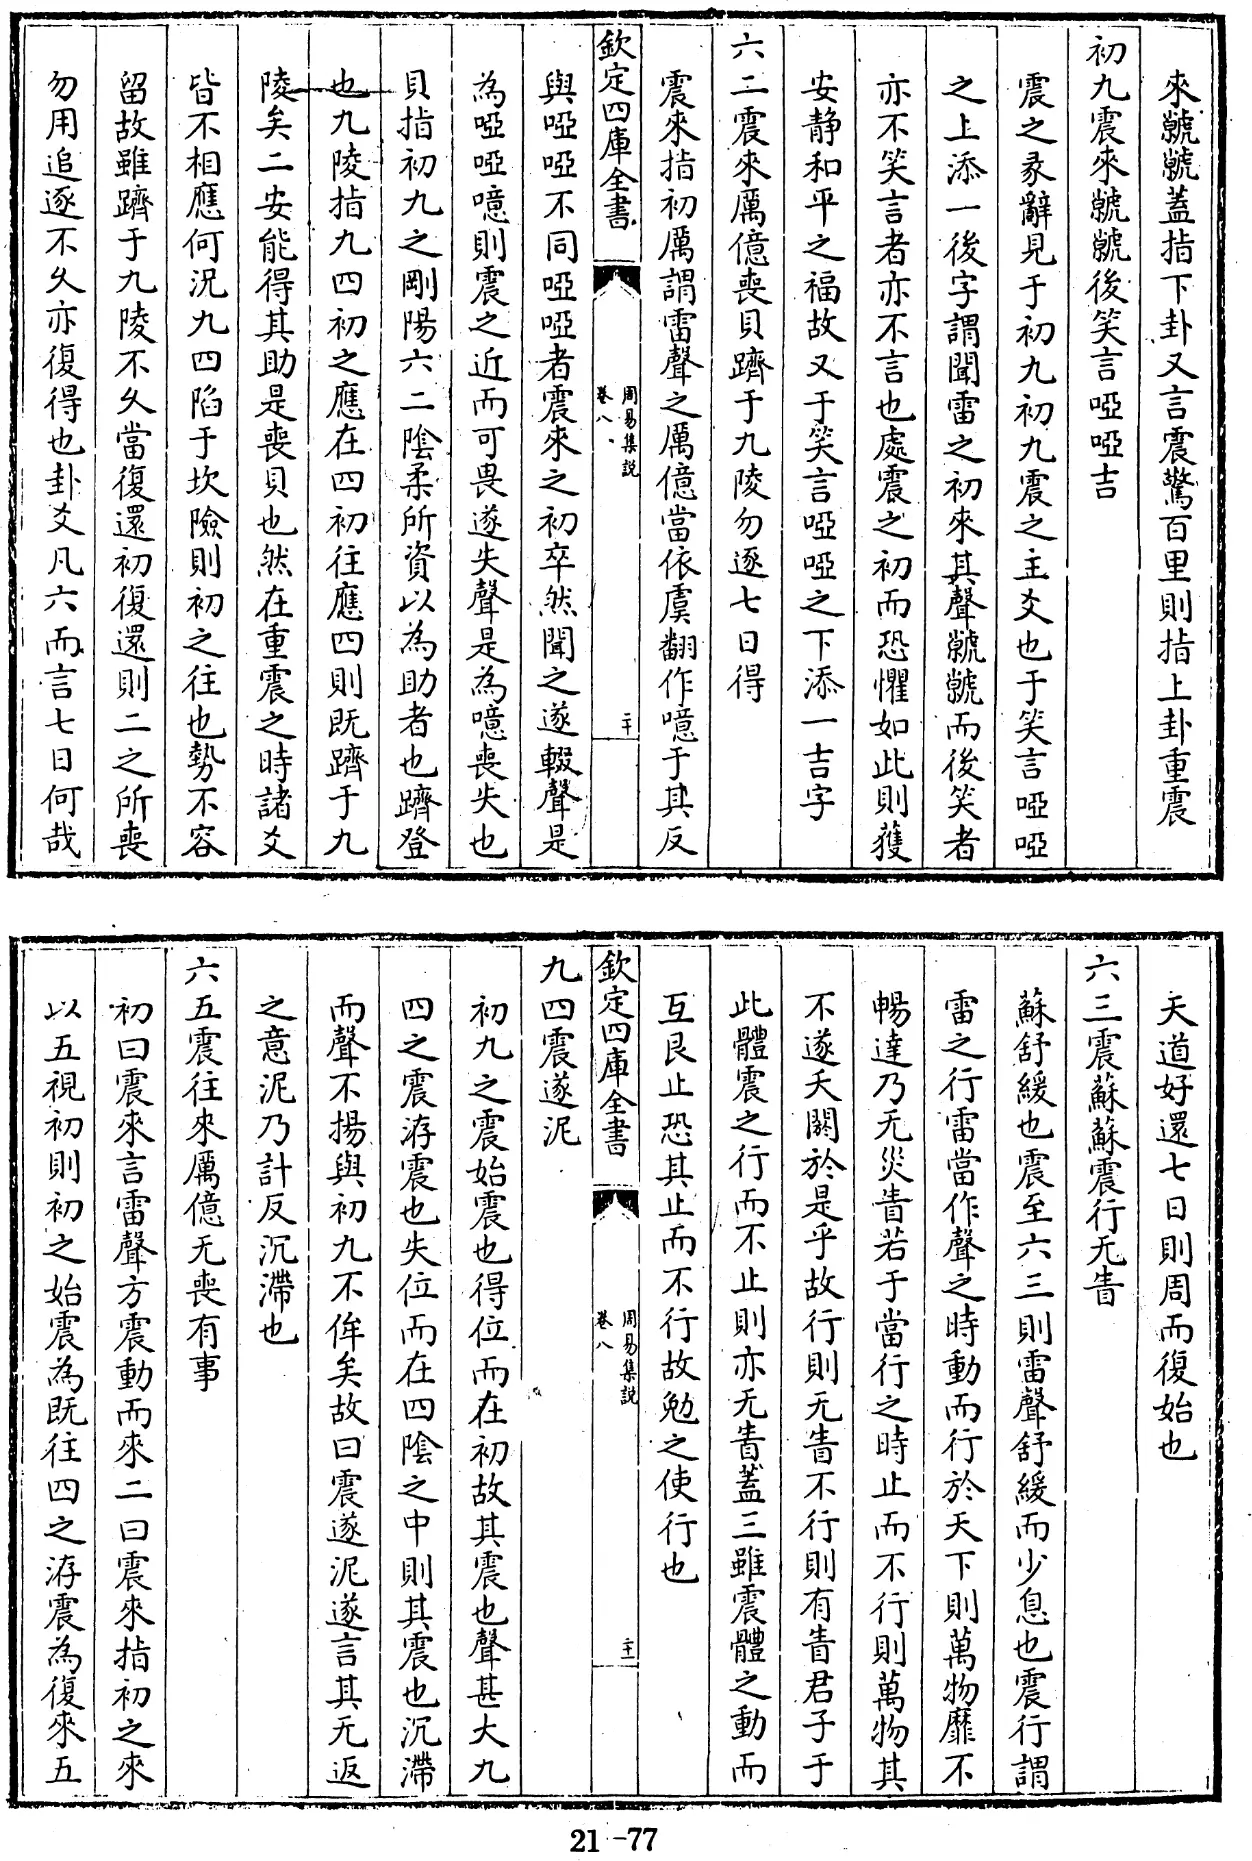 來虩虩蓋指下卦又言震驚百里則指上卦重震
初九震來虩虩後笑言啞啞吉
震之彖辭見于初九初九震之主爻也于笑言啞啞
之上添一後字謂聞雷之初來其聲虩虩而後笑者
亦不笑言者亦不言也處震之初而恐懼如此則獲
安靜和平之福故又于笑言啞啞之下添一吉字
六二震來厲億喪貝躋于九陵勿逐七日得
震來指初厲謂雷聲之厲億當依虞翻作噫于其反
欽定四庫全書
周易集説
卷八
二十
與啞啞不同啞啞者震來之初卒然聞之遂輟聲是
為啞啞噫則震之近而可畏遂失聲是為噫喪失也
貝指初九之剛陽六二陰柔所資以為助者也躋登
也九陵指九四初之應在四初往應四則既躋于九
陵矣二安能得其助是喪貝也然在重震之時諸爻
皆不相應何況九四陷于坎險則初之往也勢不容
留故雖躋于九陵不久當復還初復還則二之所喪
勿用追逐不久亦復得也卦爻凡六而言七日何哉
天道好還七日則周而復始也
六三震蘇蘇震行无眚
蘇舒緩也震至六三則雷聲舒緩而少息也震行謂
雷之行雷當作聲之時動而行於天下則萬物靡不
暢達乃无災眚若于當行之時止而不行則萬物其
不遂夭閼於是乎故行則无眚不行則有眚君子于
此體震之行而不止則亦无眚蓋三雖震體之動而
互艮止恐其止而不行故勉之使行也
欽定四庫全書
周易集説
卷八
二十一
九四震遂泥
初九之震始震也得位而在初故其震也聲甚大九
四之震洊震也失位而在四陰之中則其震也沉滯
而聲不揚與初九不侔矣故曰震遂泥遂言其无返
之意泥乃計反沉滯也
六五震往來厲億无喪有事
初曰震來言雷聲方震動而來二曰震來指初之來
以五視初則初之始震為既往四之洊震為復來五
21-77